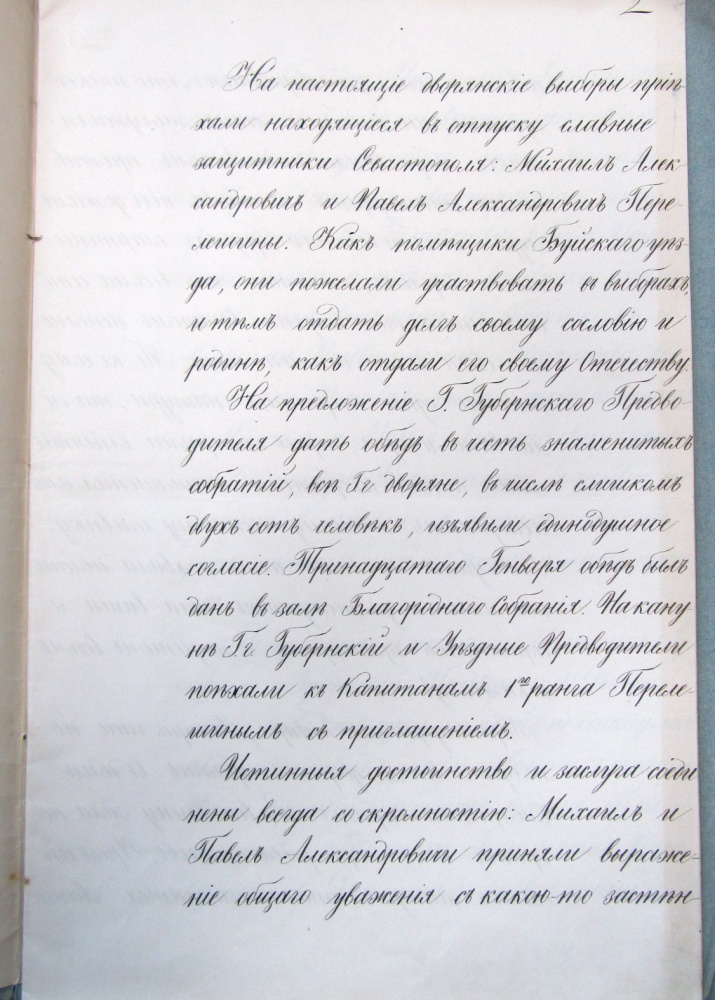 2
На настоящіе дворянскіе выборы пріѣ-
хали находящіеся въ отпуску славные
защитники Севастополя: Михаилъ Алек-
сандровичъ и Павелъ Александровичъ Пере-
лешины. Какъ помѣщики Буйскаго уѣз-
да, они пожелали участвовать въ выборахъ,
и тѣмъ отдать долгъ своему сословію и
родинѣ, какъ отдали его своему Отечеству.
На предложеніе Г. Губернскаго Предво-
дителя дать обѣдъ въ честь знаменитыхъ
собратій, всѣ Гг дворяне, въ числѣ слишкомъ
двухъ сотъ человѣкъ, изъявили единодушное
согласіе. Тринадцатаго Генваря обѣдъ былъ
данъ въ залѣ Благороднаго Собранія. Накану
нѣ Гг. Губернскій и Уѣздные Предводители
поѣхали къ Капитанамъ 1го ранга Переле-
шинымъ съ приглашеніемъ.
Истинныя достоинство и заслуга соеди
нены всегда со скромностію: Михаилъ и
Павелъ Александровичи приняли выраже-
ніе общаго уваженія съ какою-то застѣн-